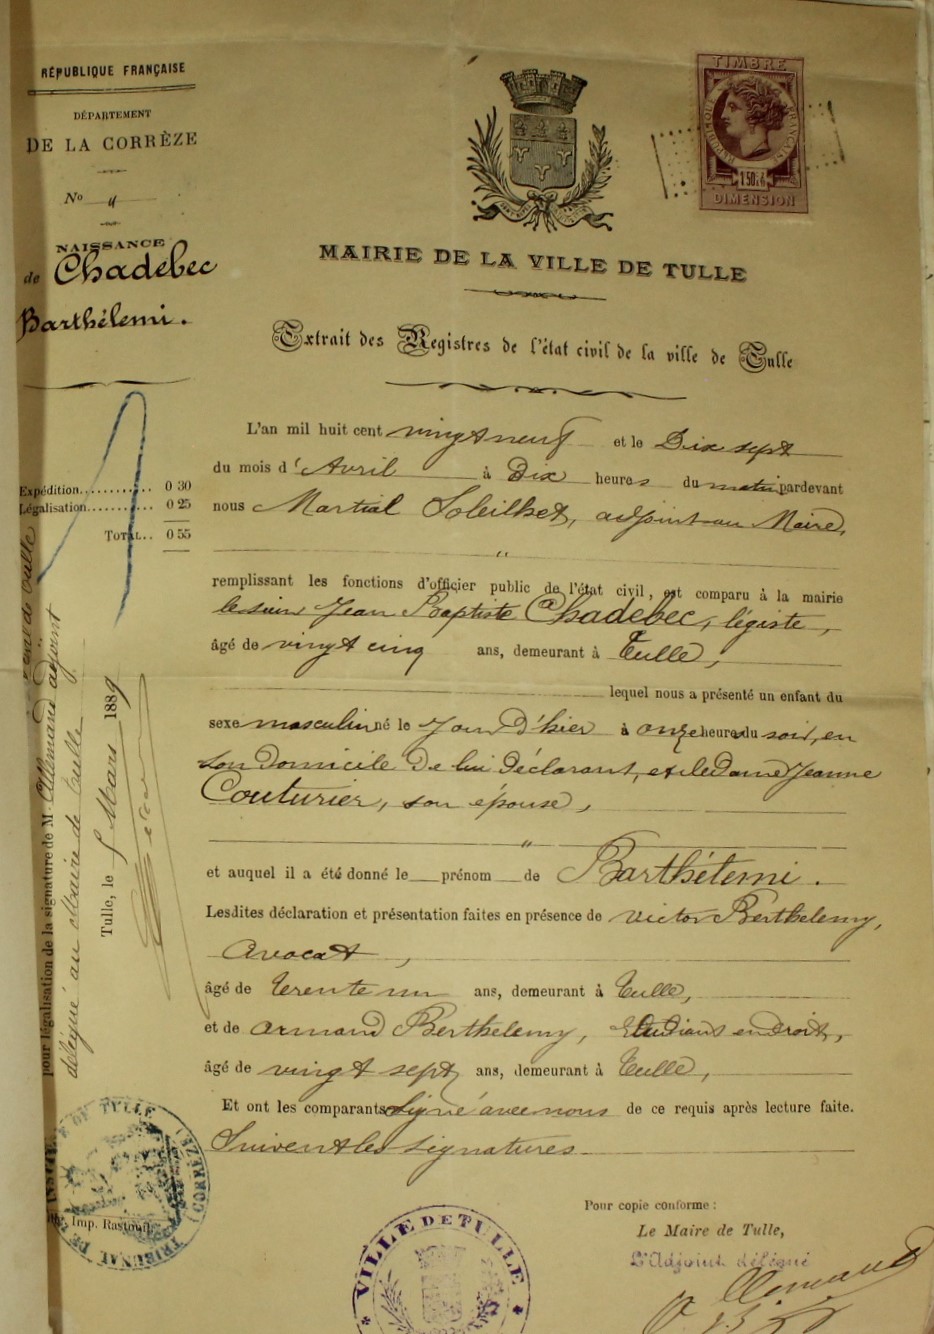 RÉPUBLIQUE FRANÇAISE
DÉPARTEMENT
DE LA CORRÈZE
No 4
NAISSANCE
de Chadebec
Barthélemi.
Expédition........... 0 30
Légalisation.......... 0 25
TOTAL.. 0 55
TIMBRE
RÉPUBLIQUE FRANÇAISE
1 50c
DIMENSION
MAIRIE DE LA VILLE DE TULLE
Extrait des Registres de l'état civil de la ville de Tulle
L'an mil huit cent vingt neuf et le Dix sept
du mois d'Avril à Dix heures du matin pardevant
nous Martial Soleilhet, adjoint au Maire,
"
remplissant les fonctions d'officier public de l'état civil, est comparu à la mairie
le sieur Jean Baptiste Chadebec, légiste,
âgé de vingt cinq ans, demeurant à Tulle,
lequel nous a présenté un enfant du
sexe masculin né le jour d'hier à onze heures du soir, en
son domicile de lui déclarant, et de dame Jeanne
Couturier, son épouse,
"
et auquel il a été donné le prénom de Barthélemi.
Lesdites déclaration et présentation faites en présence de Victor Berthelemy,
avocat,
âgé de trente un ans, demeurant à Tulle,
et de Armand Berthelemy, Etudiant en Droit,
âgé de vingt sept ans, demeurant à Tulle,
Et ont les comparants signé avec nous de ce requis après lecture faite.
Suivent les signatures
Pour copie conforme :
Le Maire de Tulle,
L'Adjoint délégué
pour légalisation de la signature de M. Allemand adjoint
délégué au Maire de Tulle
Tulle, le Mars 1889
TRIBUNAL DE
DE TULLE
(CORRÈZE)
Imp. Rastouil
VILLE DE TULLE